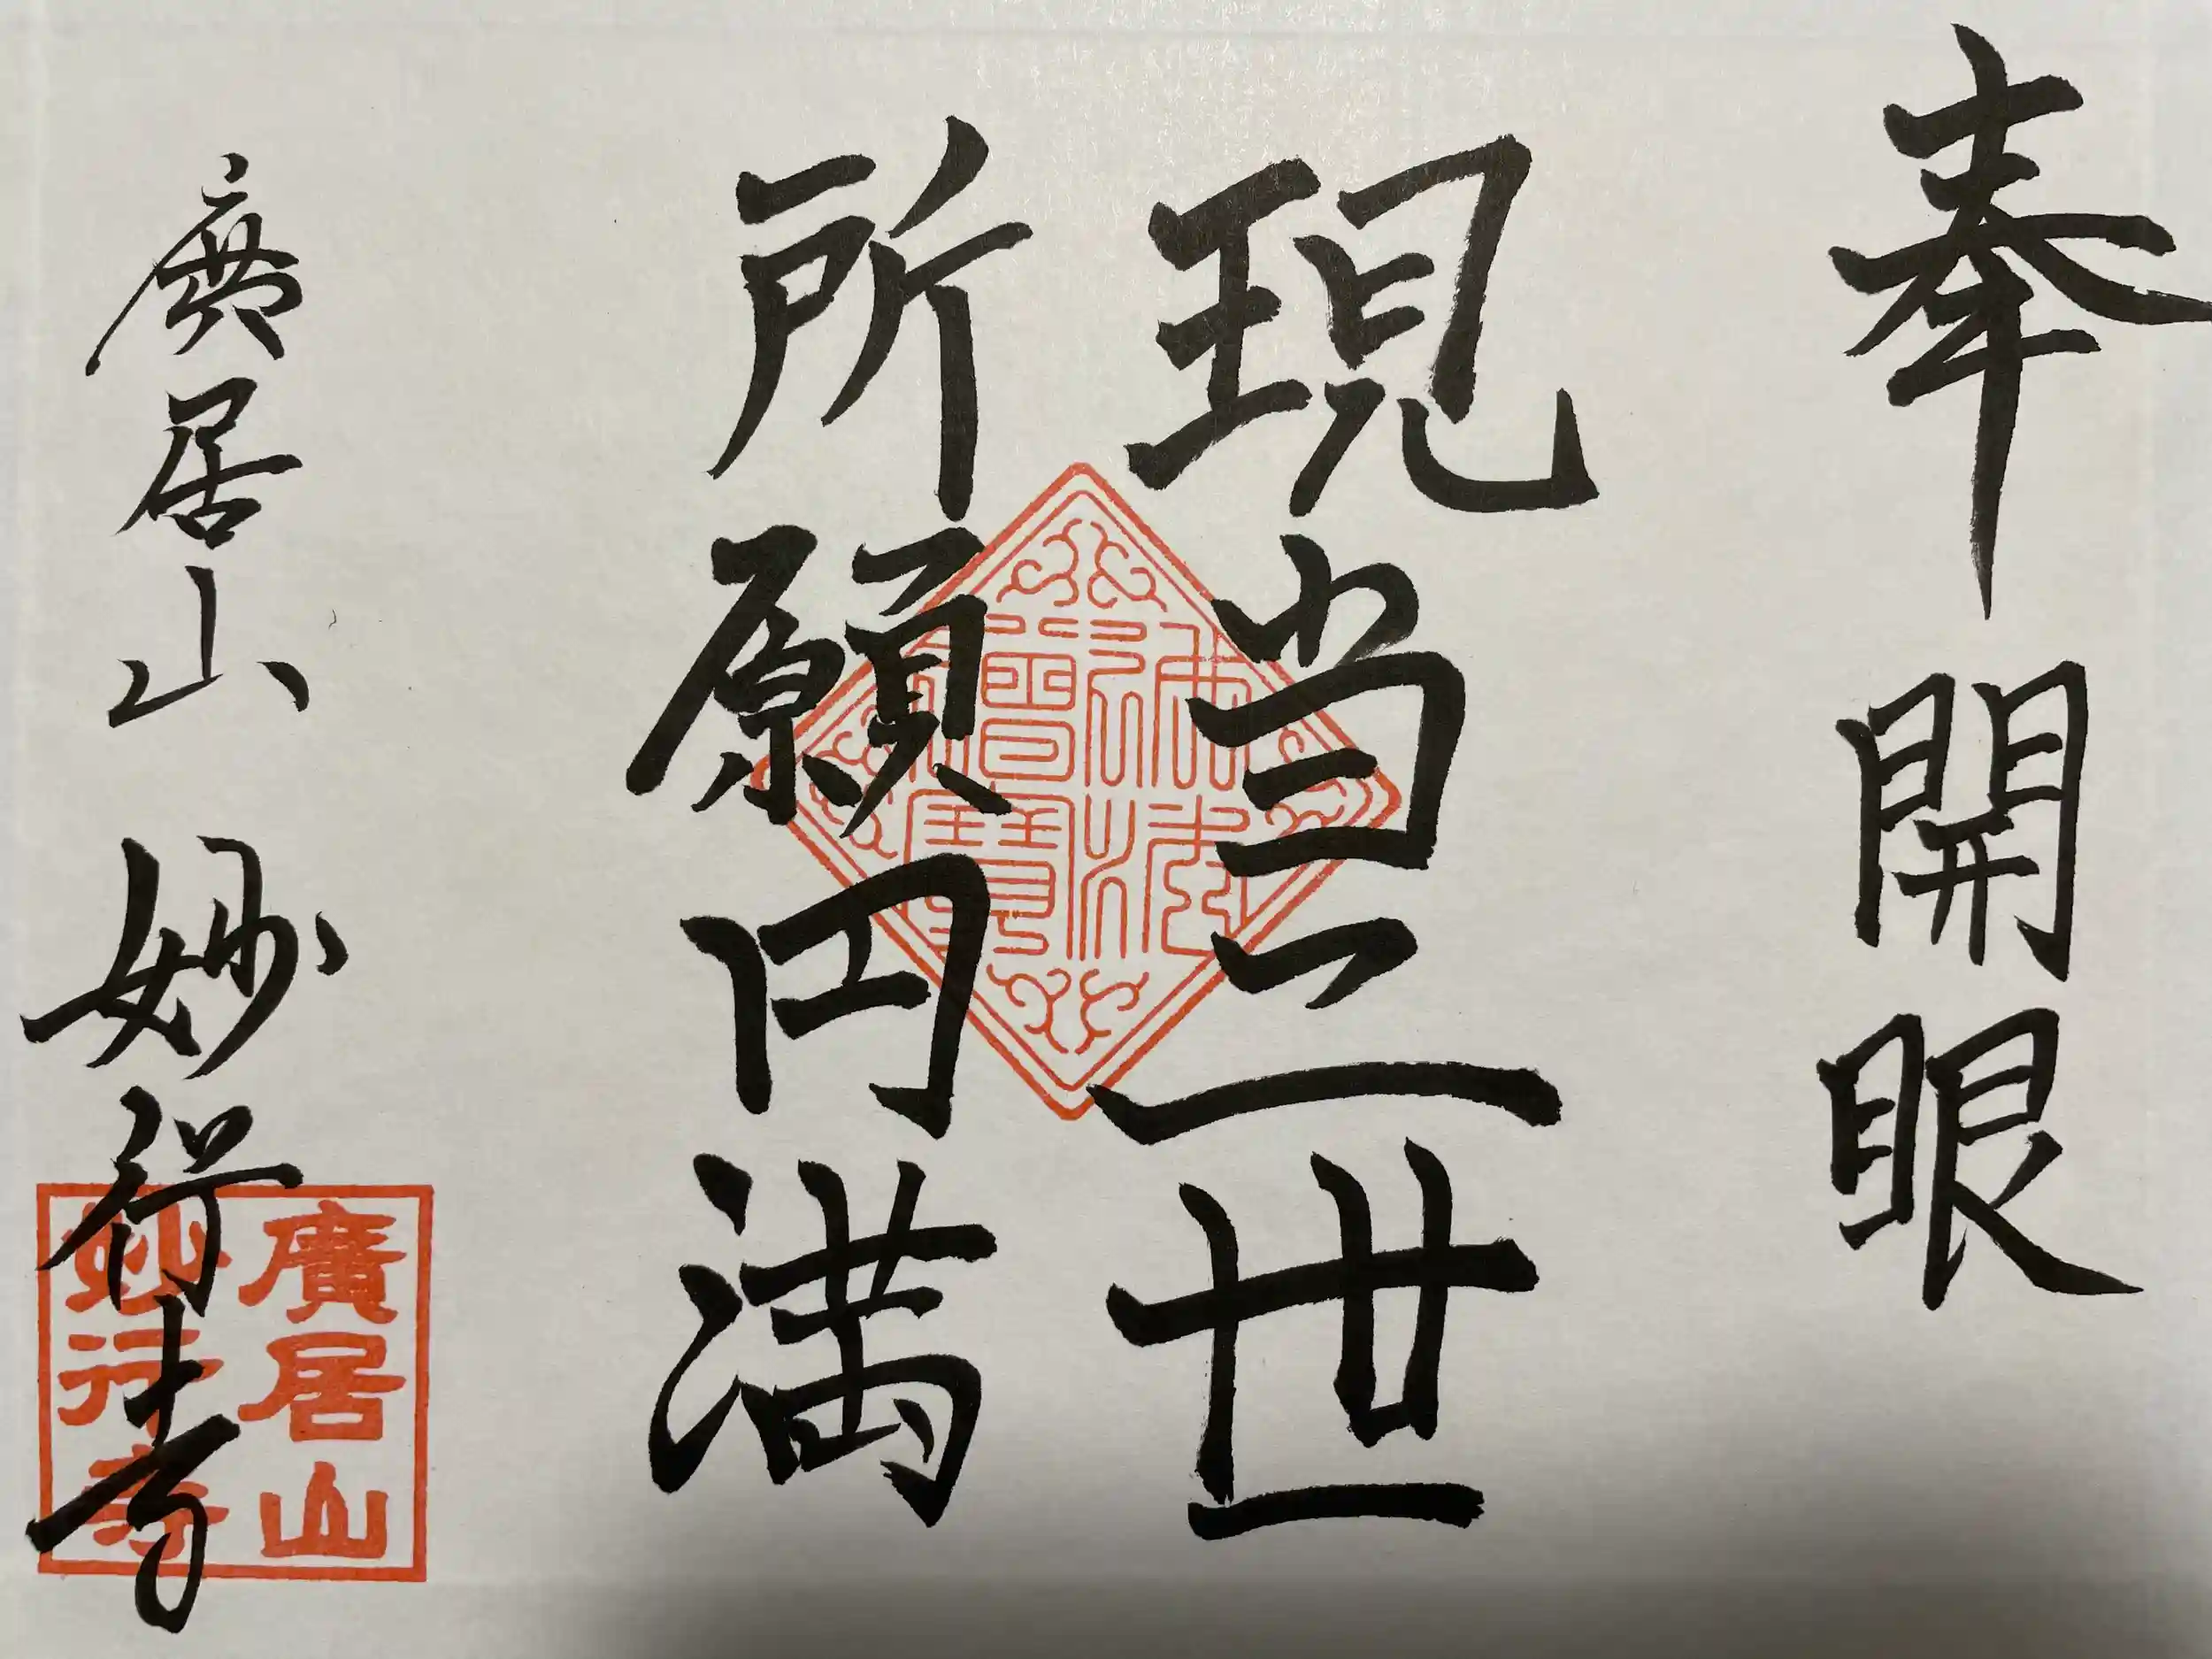 奉開眼
現当二世
所願円満
廣居山 妙行寺
佛法
僧寳
廣居山
妙行寺